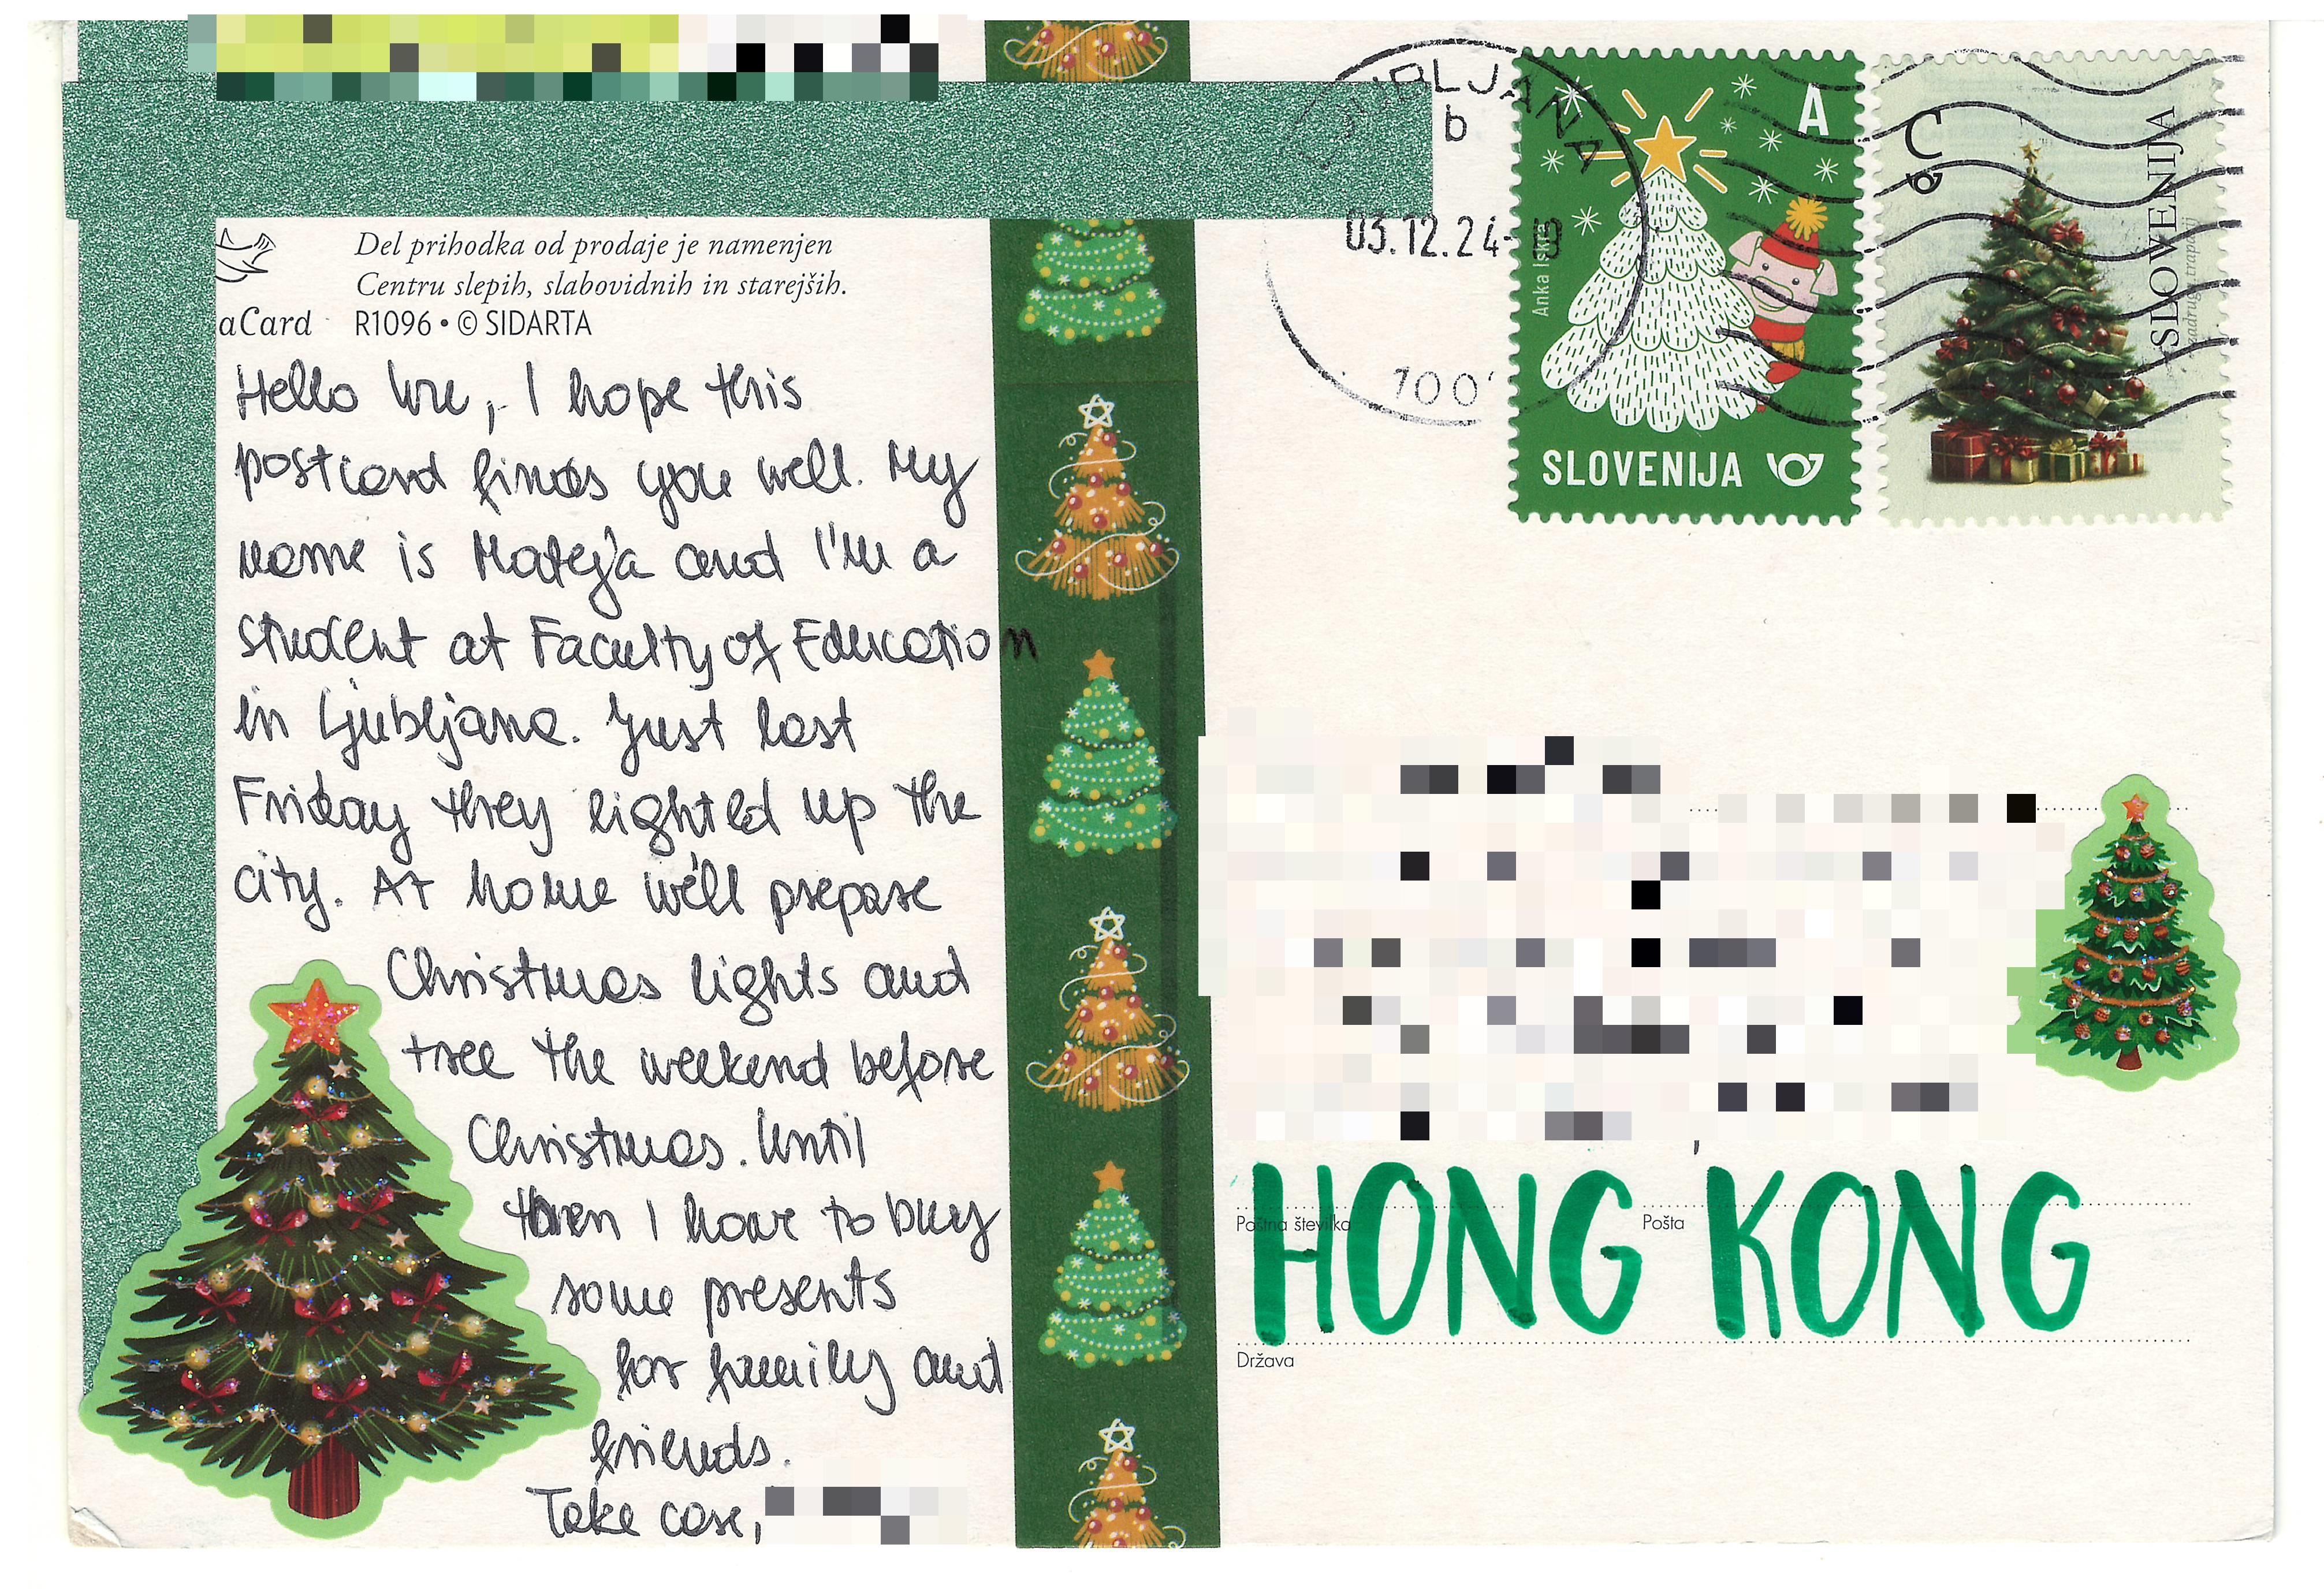 Del prihodka od prodaje je namenjen
Centru slepih, slabovidnih in starejših.
aCard R1096 • © SIDARTA
Hello , I hope this
postcard finds you well. My
name is Mateja and I'm a
student at Faculty of Education
in Ljubljana. Just last
Friday they lighted up the
city. At home we'll prepare
Christmas lights and
tree the weekend before
Christmas. Until
then I have to buy
some presents
for family and
friends.
Take care,
LJUBLJANA
b
03.12.24
100
A
Anka
SLOVENIJA
C
SLOVENIJA
HONG KONG
Poštna številka
Pošta
Država